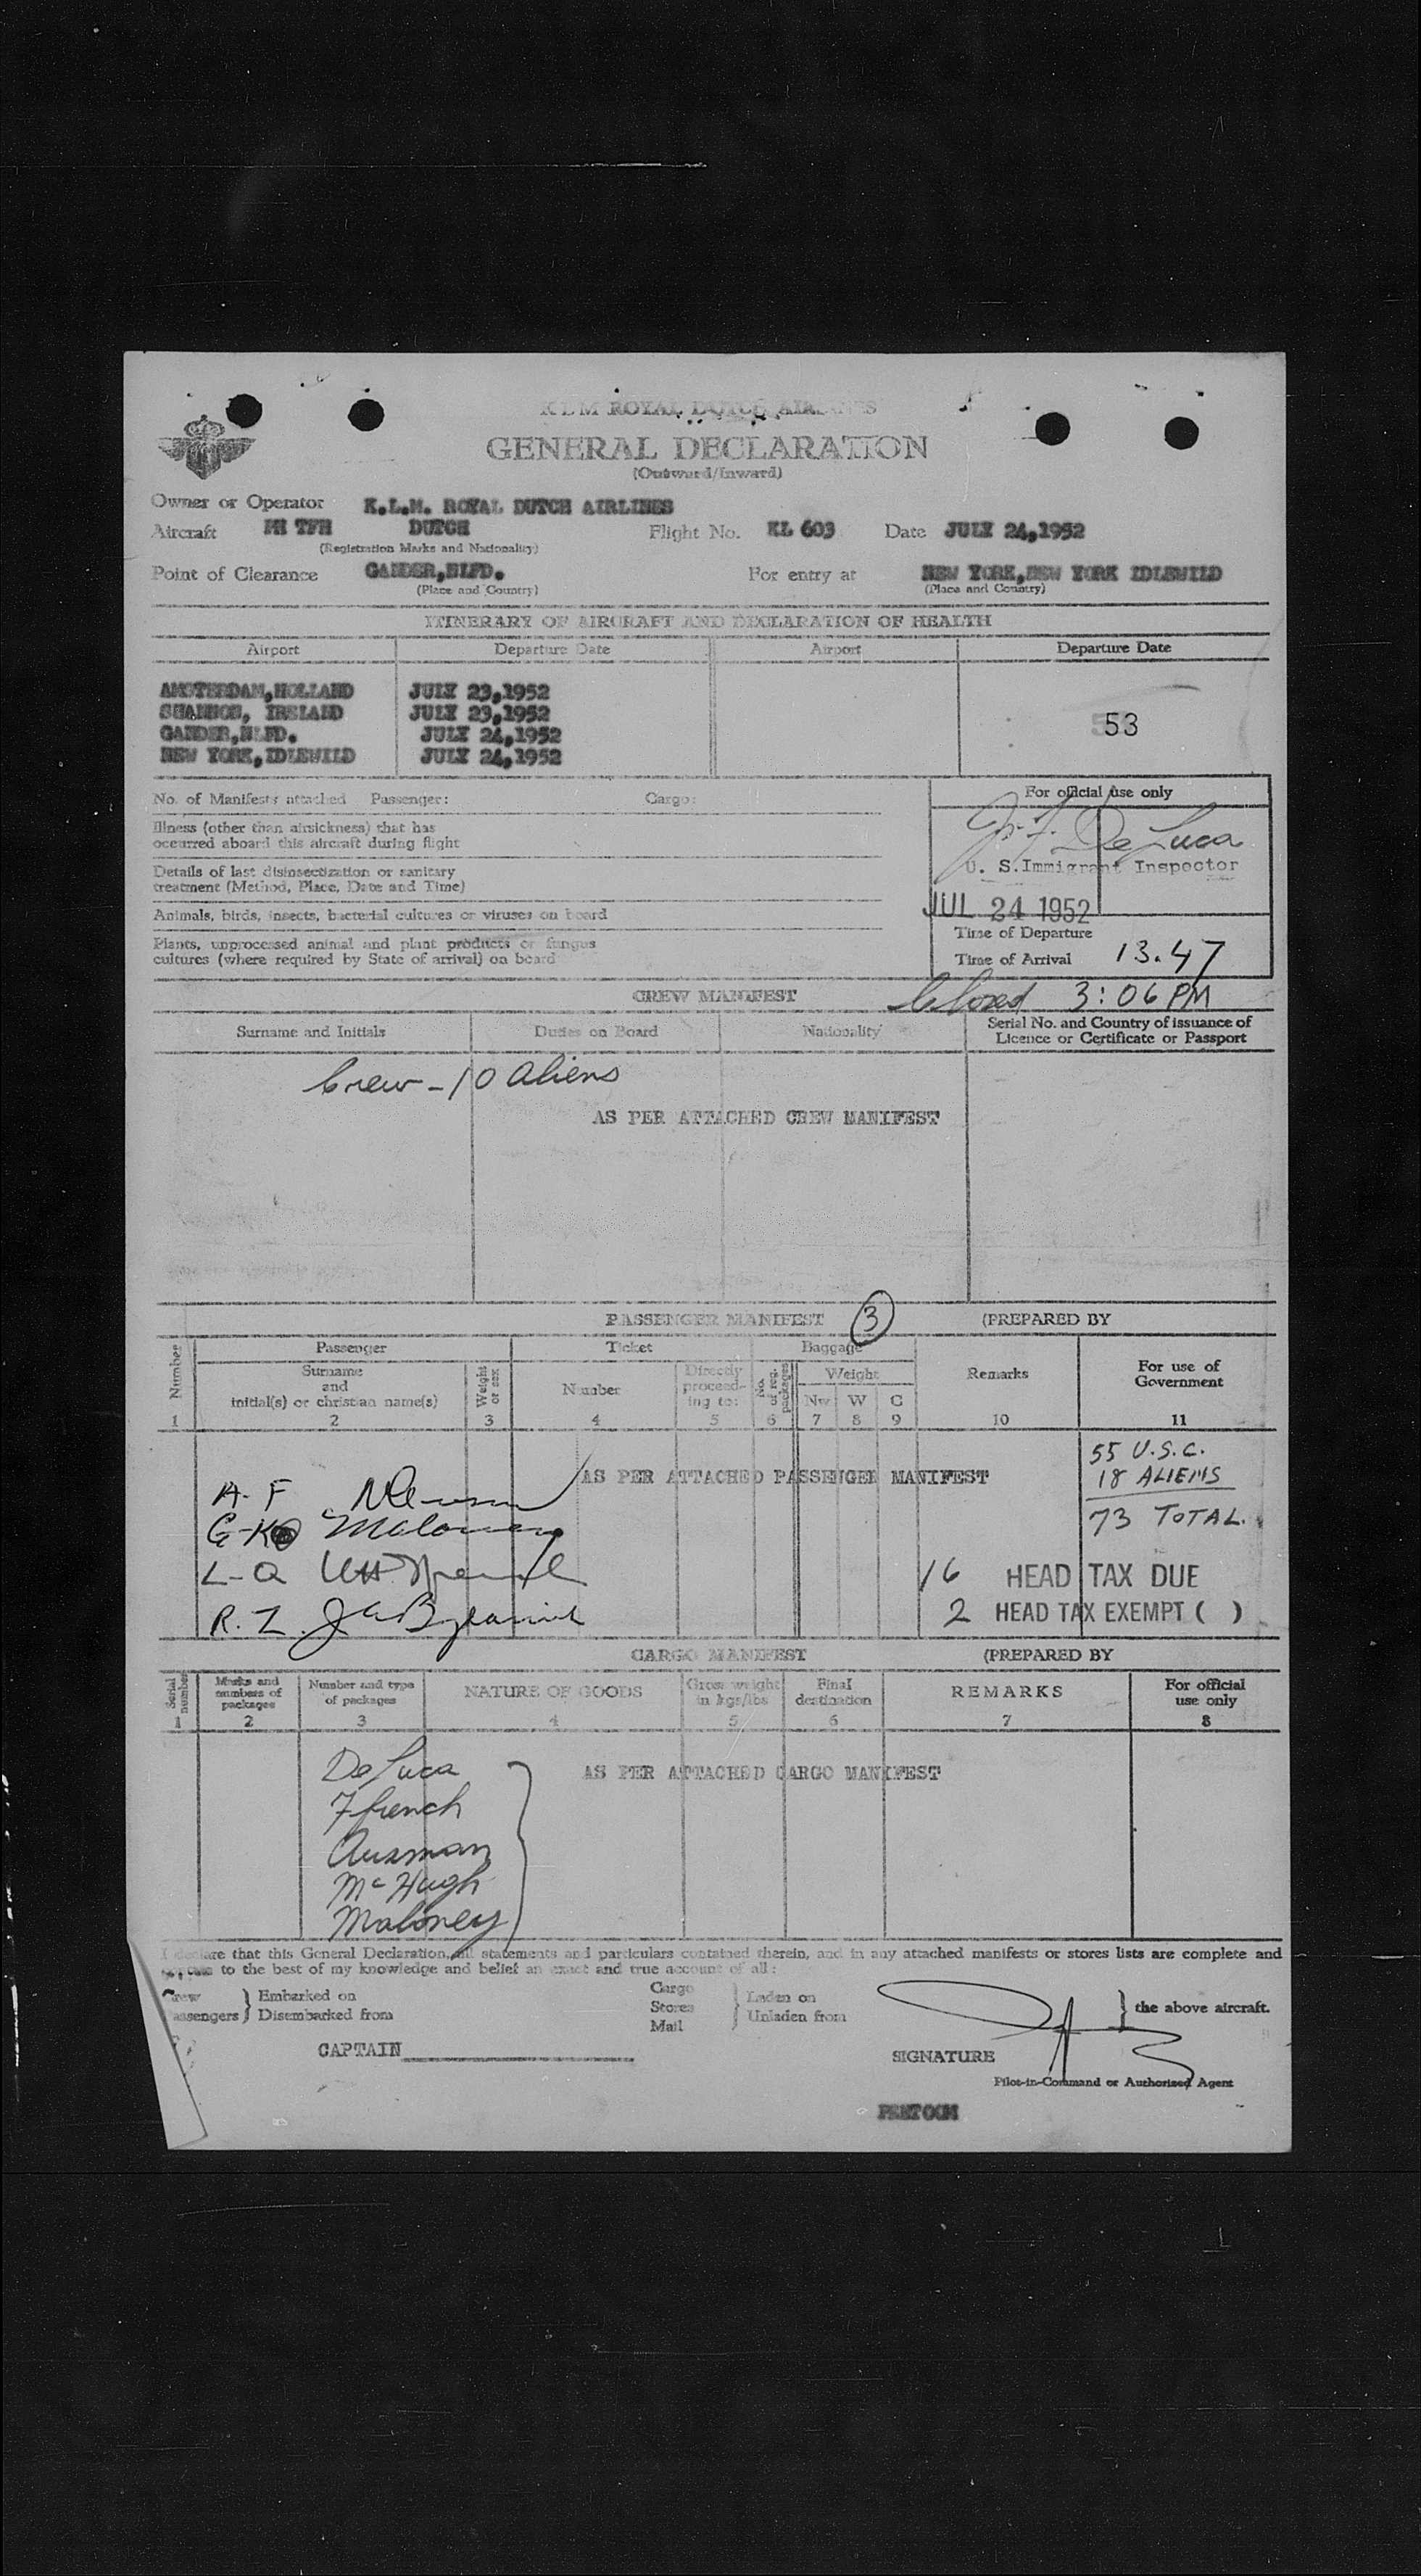 KLM ROYAL DUTCH AIRLINES
GENERAL DECLARATION
(Outward/Inward)
Owner or Operator K.L.M. ROYAL DUTCH AIRLINES
Aircraft PH TFH DUTCH Flight No. KL 603 Date JULY 24,1952
(Registration Marks and Nationality)
Point of Clearance GANDER,NLFD. For entry at NEW YORK,NEW YORK IDLEWILD
(Place and Country) (Place and Country)
ITINERARY OF AIRCRAFT AND DECLARATION OF HEALTH
Airport Departure Date Airport Departure Date
AMSTERDAM,HOLLAND JULY 23,1952
SHANNON, IRELAND JULY 23,1952
53
GANDER,NLFD. JULY 24,1952
NEW YORK,IDLEWILD JULY 24,1952
No. of Manifests attached Passenger: Cargo:
Illness (other than airsickness) that has
ocurred aboard this aircraft during flight
Details of last disinsectization or sanitary
treatment (Method, Place, Date and Time)
Animals, birds, insects, bacterial cultures or viruses on board
Plants, unprocessed animal and plant products or fungus
cultures (where required by State of arrival) on board
For official use only
J. F. De Luca
U. S.Immigrant Inspector
JUL 24 1952
Time of Departure
Time of Arrival 13.47
Closed 3:06 PM
CREW MANIFEST
Surname and Initials Duties on Board Nationality Serial No. and Country of issuance of
Licence or Certificate or Passport
Crew - 10 aliens
AS PER ATTACHED CREW MANIFEST
PASSENGER MANIFEST 3 (PREPARED BY
Number Passenger Ticket Baggage Remarks For use of
Government
Surname
and
initial(s) or christian name(s)
Weight or sex
Number
Directly
proceed-
ing to:
No. of reg. packages
Weight
Nw W C
1 2 3 4 5 6 7 8 9 10 11
AS PER ATTACHED PASSENGER MANIFEST
55 U.S.C.
18 ALIENS
73 TOTAL.
A-F
G-K Maloney
L-Q
R.Z.
16 HEAD TAX DUE
2 HEAD TAX EXEMPT ( )
CARGO MANIFEST (PREPARED BY
Serial number
Marks and
numbers of
packages
Number and type
of packages
NATURE OF GOODS
Gross weight
in kgs/lbs
Final
destination
REMARKS
For official
use only
1 2 3 4 5 6 7 8
AS PER ATTACHED CARGO MANIFEST
De Luca
Ffrench
Ausman
McHugh
Maloney
I declare that this General Declaration, all statements and particulars contained therein, and in any attached manifests or stores lists are complete and
to the best of my knowledge and belief an exact and true account of all:
Crew
Passengers } Embarked on
Disembarked from
Cargo
Stores
Mail } Laden on
Unladen from } the above aircraft.
CAPTAIN
SIGNATURE
Pilot-in-Command or Authorized Agent